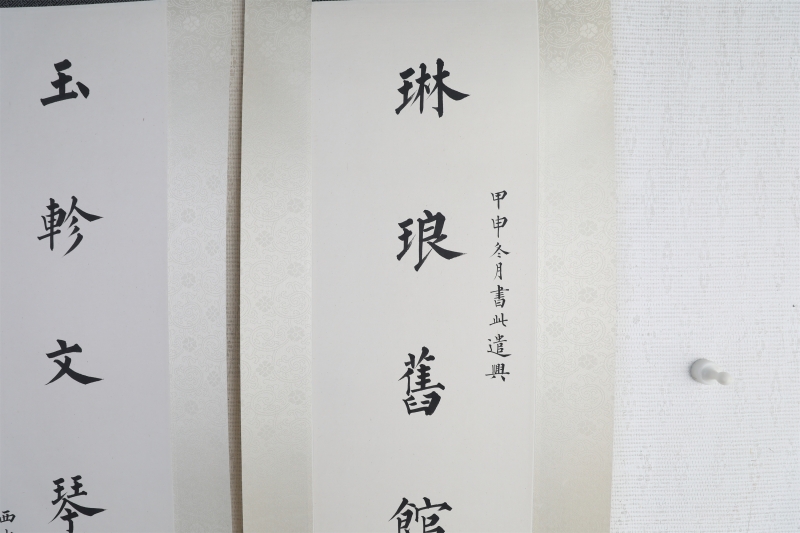 琳琅舊館
甲申冬月書此遣興
玉軫文琴
西